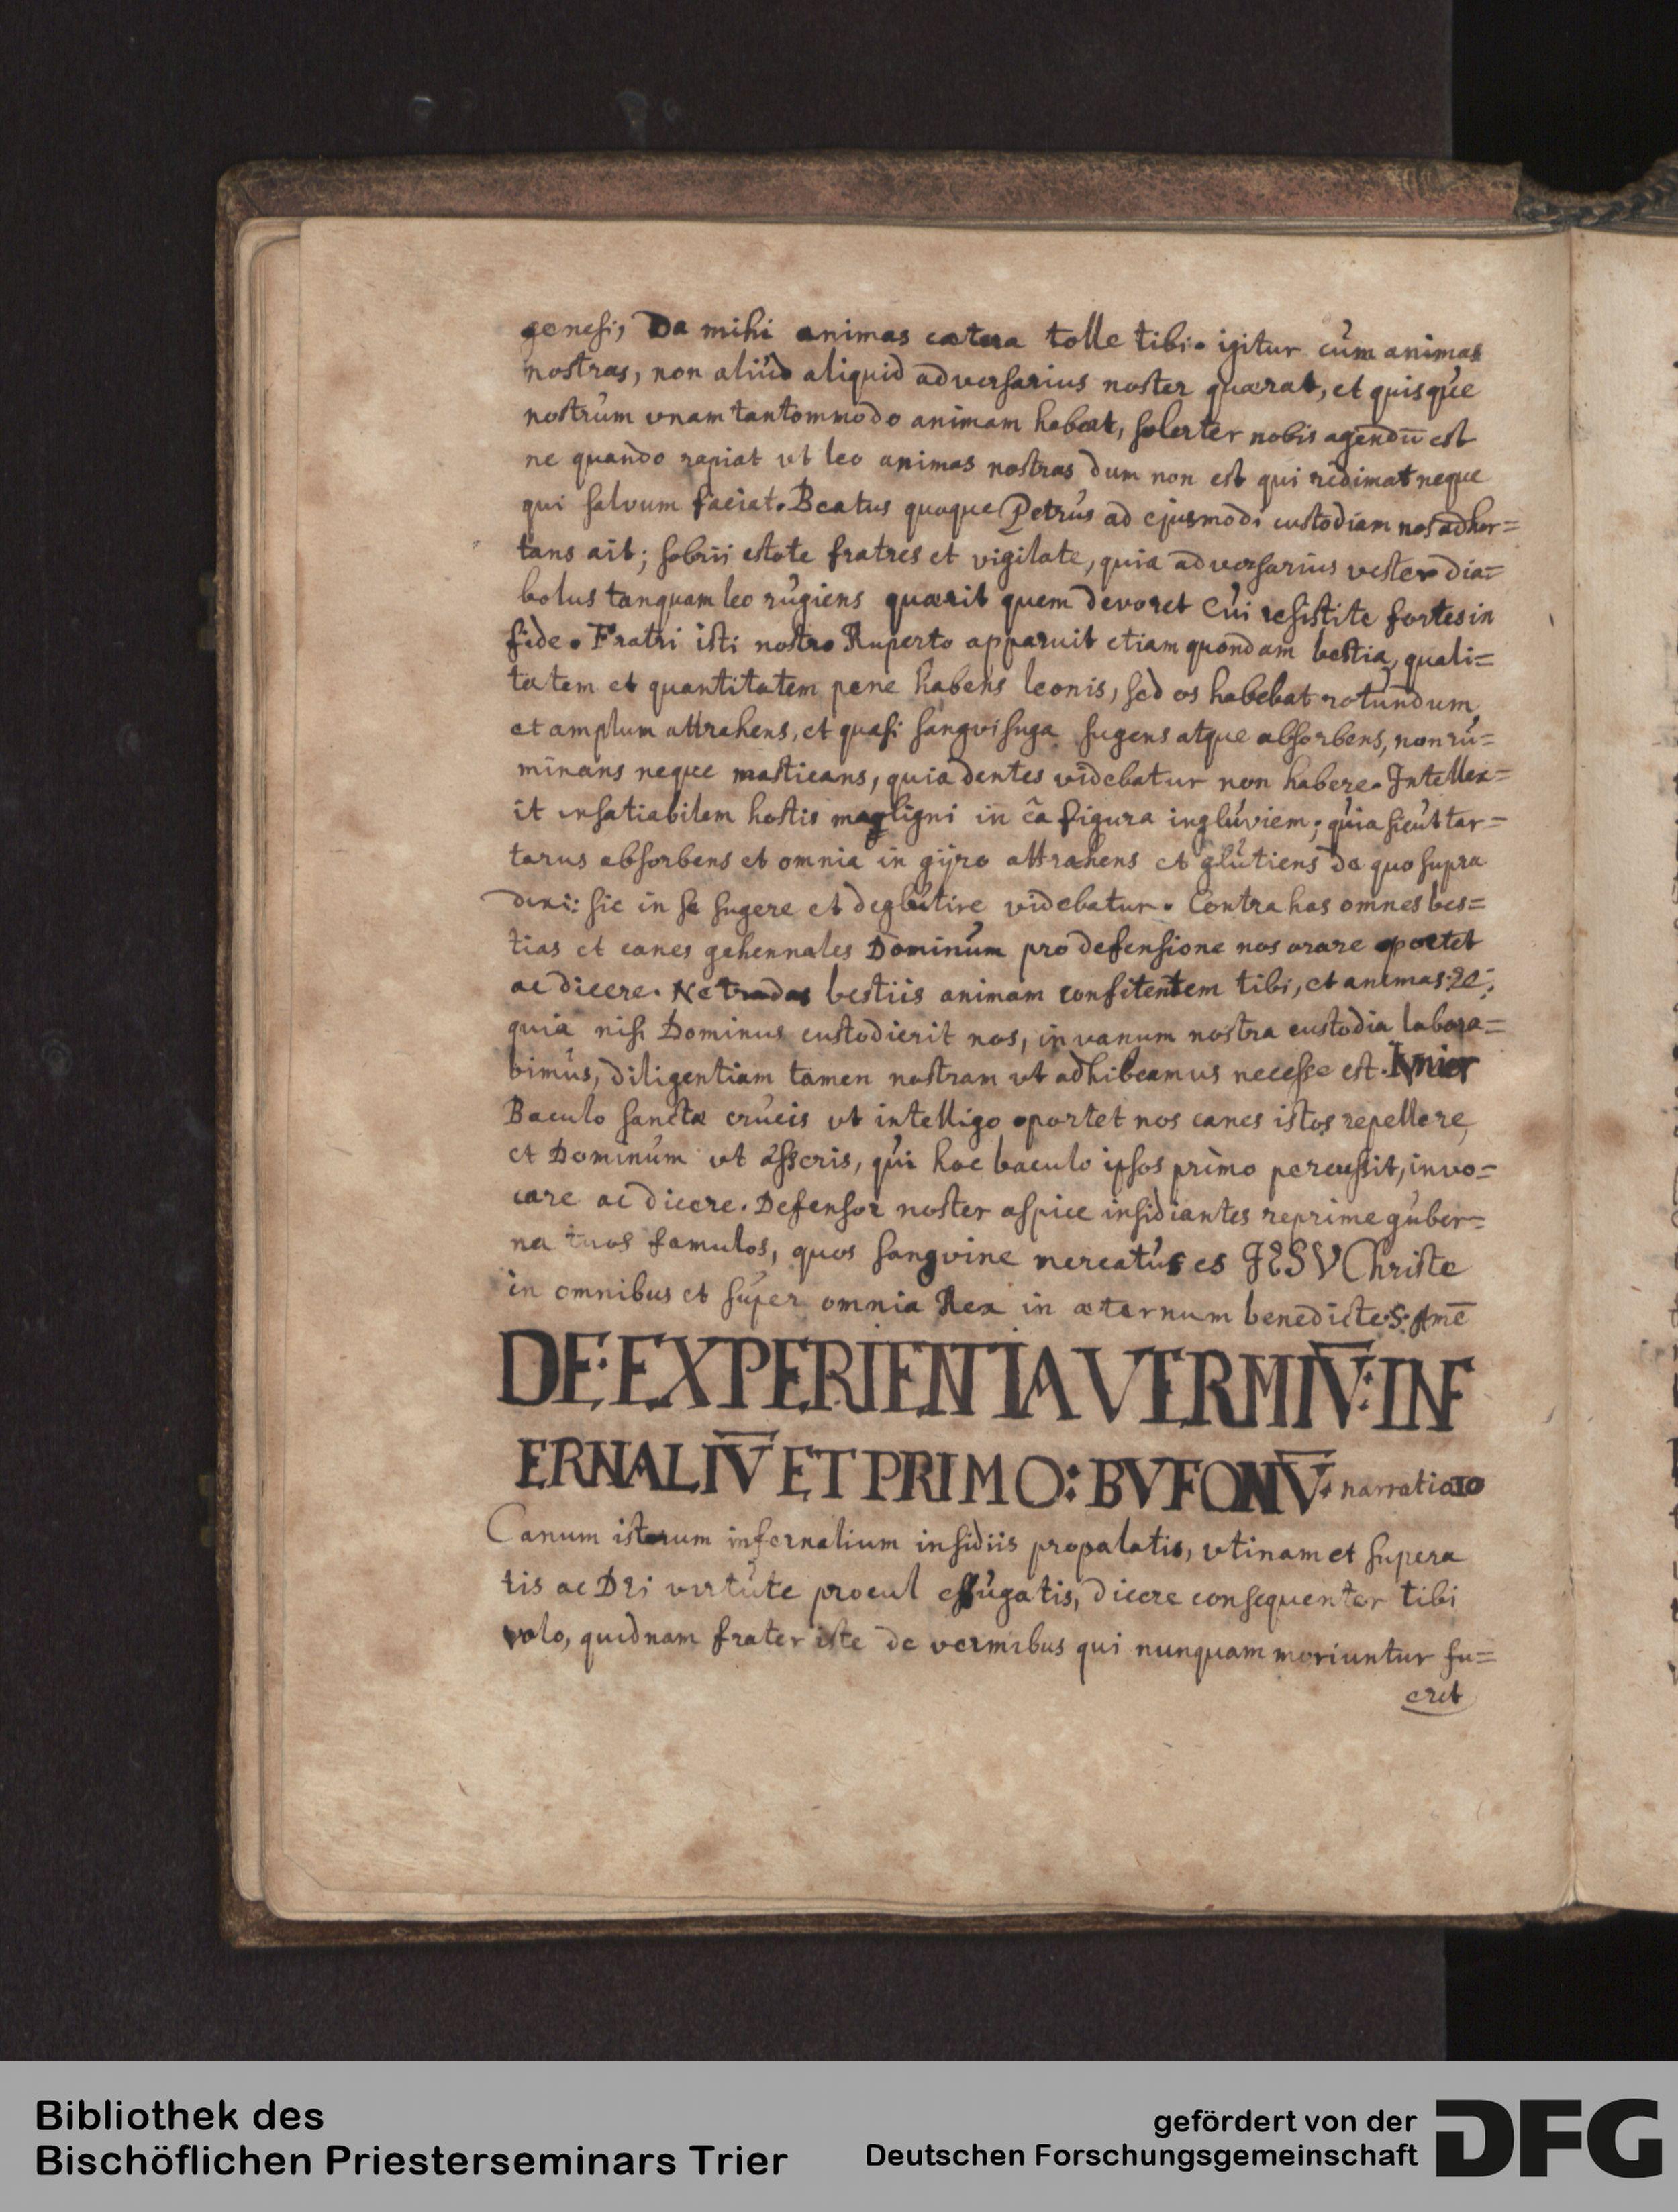 genesi, Da mihi animas cætera tolle tibi. igitur cùm animas
nostras, non aliùd aliquid adversarius noster quærat, et quisque
nostrùm vnam tantommodo animam habeat, solerter nobis agendū est
ne quando rapiat vt leo animas nostras dum non est qui redimat neque
qui salvum faciat. Beatus quoque Petrùs ad ejusmodi custodiam nos adhor=
tans ait; sobrii estote fratres et vigilate, quia adversarius vester dia=
bolus tanquam leo rùgiens quærit quem devoret Cùi resistite fortes in
fide. Fratri isti nostro Ruperto apparuit etiam quondam bestia, quali=
tatem et quantitatem pene habens leonis, sed os habebat rotundum,
et amplum attrahens, et quasi sangvisuga sugens atque absorbens, non rù=
minans neque masticans, quia dentes videbatur non habere. Intellex=
it insatiabilem hostis maligni in eâ figura inglùviem; qùia sicùt tar=
tarus absorbens et omnia in gÿro attrahens et glùtiens de quo supra
dixi: sic in se sugere et deglutire videbatur. Contra has omnes bes=
tias et canes gehennales Dominùm pro defensione nos orare oportet
ac dicere. Ne tradas bestiis animam confitentem tibi, et animas:
quia nisi Dominus custodierit nos, in vanum nostra custodia labora=
bimùs, diligentiam tamen nostram vt adhibeamus necesse est. Iunior
Baculo sanctæ crùcis vt intelligo oportet nos canes istos repellere,
et Dominùm vt asseris, qùi hoc baculo ipsos primo percussit, invo=
care ac dicere. Defensor noster aspice insidiantes reprime gùber=
na tuos famulos, quos sangvine mercatùs es JESV Christe
in omnibus et sùper omnia Rex in æternum benedicte. S. Amē
DE: EXPERIENTIA VERMIV̅: INF
ERNALIV̅ ET PRIMO: BVFONV̅: narratio 10
Canum istorum infernalium insidiis propalatis, vtinam et supera
tis ac Dei virtùte procul effùgatis, dicere consequenter tibi
volo, quidnam frater iste de vermibus qui nunquam moriuntur fu=
erit
Bibliothek des
Bischöflichen Priesterseminars Trier
gefördert von der
Deutschen Forschungsgemeinschaft
DFG